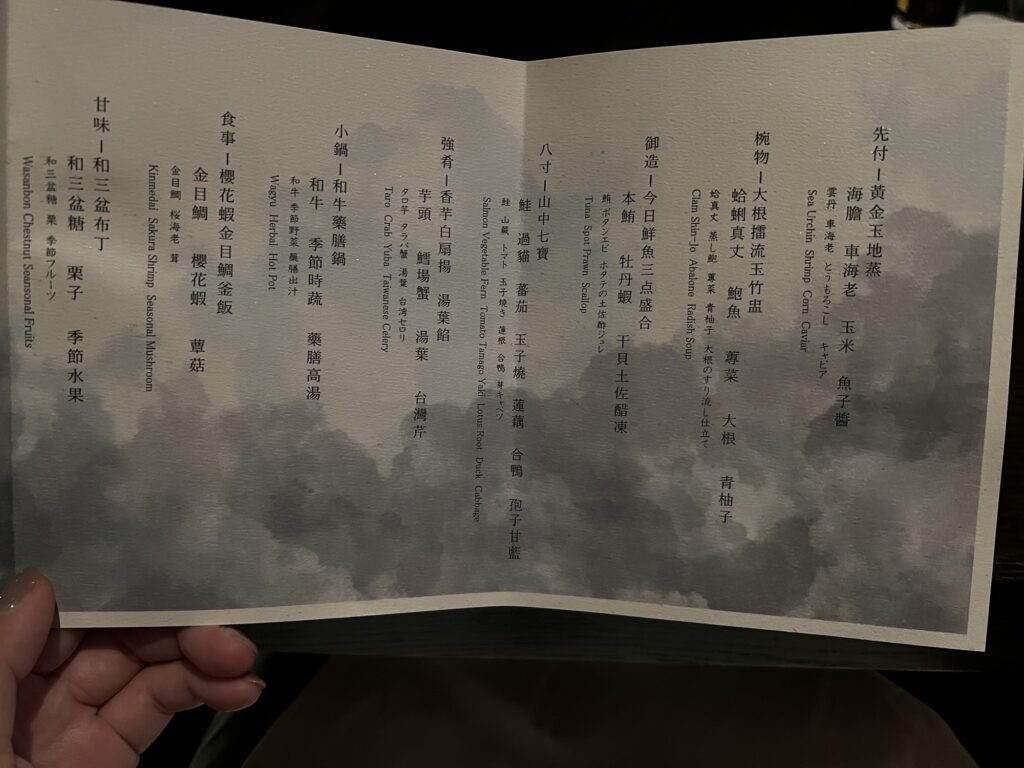 先付ー黃金玉地蒸
海膽　車海老　玉米　魚子醬
雲丹　車海老　とうもろこし　キャビア
Sea Urchin Shrimp Corn Caviar
椀物ー大根擂流玉竹盅
蛤蜊真丈　鮑魚　蓴菜　大根　青柚子
蛤真丈　蒸し鮑　蓴菜　青柚子　大根のすり流し仕立て
Clam Shin-Jo Abalone Radish Soup
御造ー今日鮮魚三点盛合
本鮪　牡丹蝦　干貝土佐醋凍
鮪　ボタンエビ　ホタテの土佐酢ジュレ
Tuna Spot Prawn Scallop
八寸ー山中七寶
鮭　過貓　蕃茄　玉子燒　蓮藕　合鴨　孢子甘藍
鮭　山蕨　トマト　玉子焼き　蓮根　合鴨　芽キャベツ
Salmon Vegetable Fern Tomato Tamago Yaki Lotus Root Duck Cabbage
強肴ー香芋白扇揚　湯葉餡
芋頭　鱈場蟹　湯葉　台灣芹
タロ芋　タラバ蟹　湯葉　台湾セロリ
Taro Crab Yuba Taiwanese Celery
小鍋ー和牛藥膳鍋
和牛　季節時蔬　藥膳高湯
和牛　季節野菜　藥膳出汁
Wagyu Herbal Hot Pot
食事ー櫻花蝦金目鯛釜飯
金目鯛　櫻花蝦　蕈菇
金目鯛　桜海老　茸
Kinmedai Sakura Shrimp Seasonal Mushroom
甘味ー和三盆布丁
和三盆糖　栗子　季節水果
和三盆糖　栗　季節フルーツ
Wasanbon Chestnut Seansonal Fruits